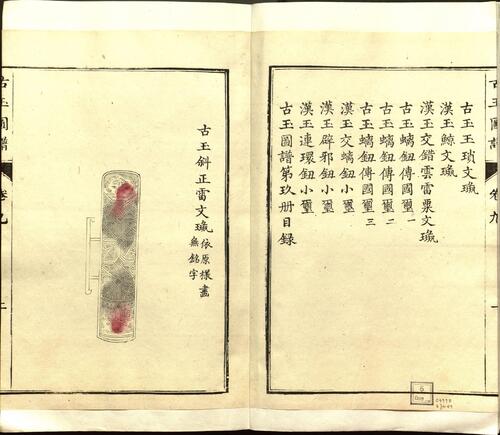 古玉圖譜
卷九
古玉玉瑣文瓛
漢玉鯨文瓛
漢玉交錯雲雷粟文瓛
古玉螭鈕傳國璽一
古玉螭鈕傳國璽二
古玉螭鈕傳國璽三
漢玉交螭鈕小璽
漢玉辟邪鈕小璽
漢玉連環鈕小璽
古玉圖譜第玖册目錄
古玉斜正雷文瓛
依原樣畫
無銘字
古玉圖譜
卷九